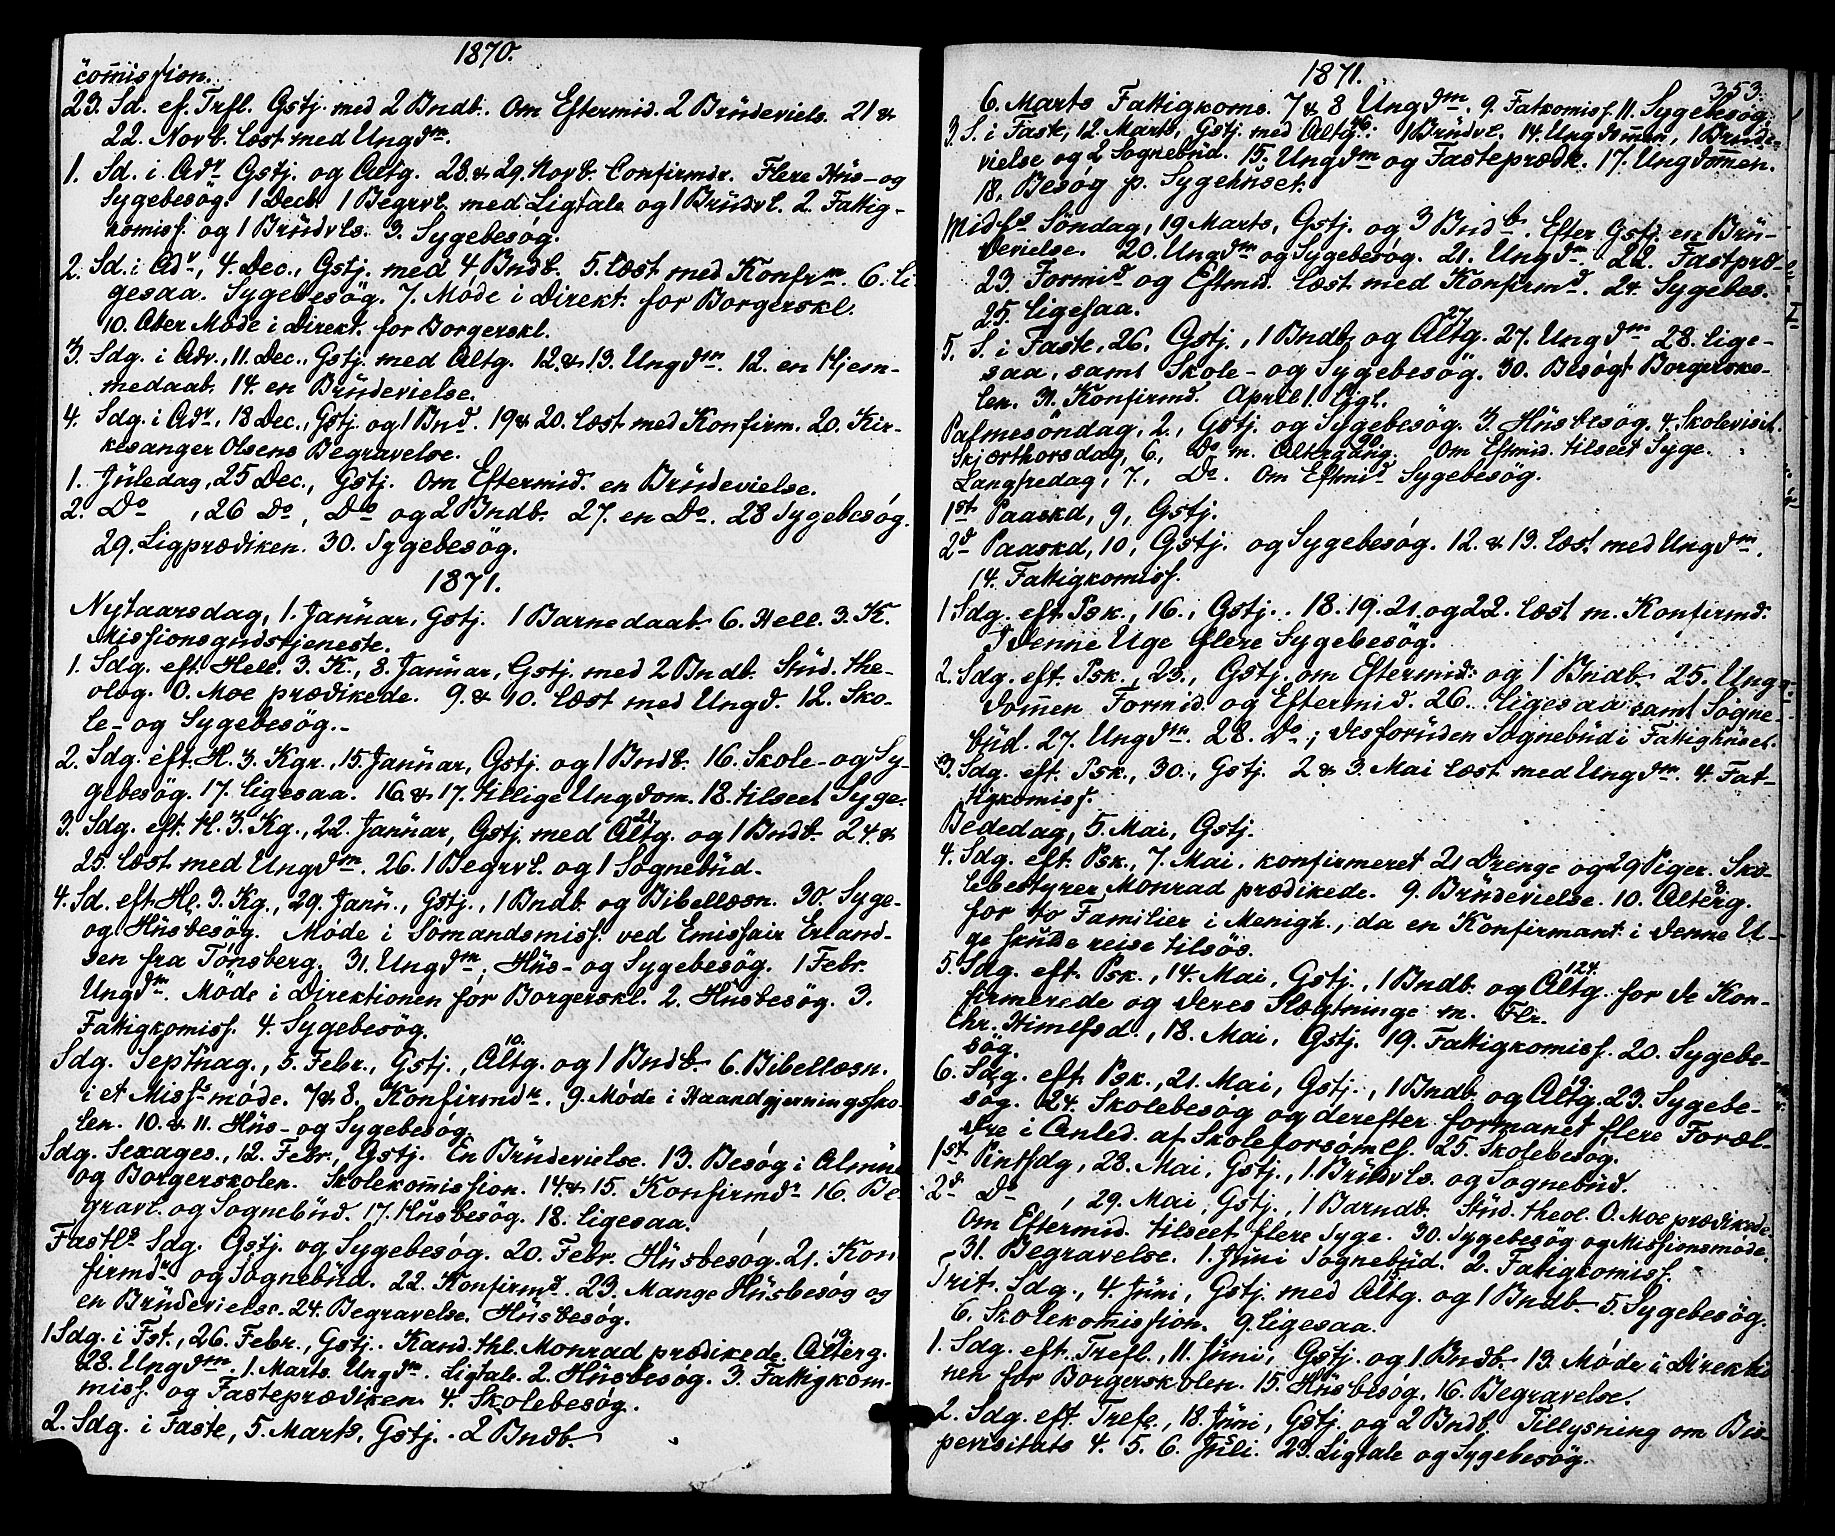 1870.
comission.
23. Sd. ef. Trfl. Gstj. med 2 Bndb. Om Eftermid. 2 Brüdeviels. 21 &
22. Novb. læst med Ungdm.
1. Sd. i Adv Gstj. og Altg. 28. & 29. Novb. Confirmdr. Flere Hüs- og
Sygebesög. 1 Decb. 1 Begrvl. med Ligtale og 1 Brüdvl. 2. Fattig-
komiss. og 1 Brüdvls. 3. Sygebesög.
2. Sd. i Adv, 4. Dec., Gstj. med 4 Bndb. 5. læst med Konfrm. 6. li-
gesaa. Sygebesög. 7. Möde i Direkt. for Borgerskl.
10. Ater Möde i Direkt. for Borgerskl.
3. Sdg. i Adv., 11. Dec., Gstj. med Altg. 12. & 13. Ungdm. 12. en Hjem-
medaab. 14. en Brüdevielse.
4. Sdg. i Adv, 18 Dec., Gstj. og 1 Bnd. 19 & 20. læst med Konfirm. 20. Kir-
kesanger Olsens Begravelse.
1. Jüledag, 25 Dec., Gstj. Om Eftermid. en Brüdevielse.
2. Do , 26 Do, Do og 2 Bndb. 27. en Do. 28 Sygebesög.
29. Ligprædiken. 30. Sygebesög.
1871.
Nytaarsdag, 1. Janüar, Gstj. 1 Barnedaab. 6. Hell. 3. K.
Missionsgudstjeneste.
1. Sdg. eft. Hell. 3. K., 8. Janüar, Gstj. med 2 Bndb. Stüd. the-
olog. O. Moe prædikede. 9. & 10. læst med Ungd. 12. Sko-
le- og Sygebesög.-
2. Sdg. eft. H. 3. Kgr., 15. Janüar, Gstj. og 1 Bndb. 16. Skole- og Sy-
gebesög. 17. ligesaa. 16. & 17. tillige Ungdom. 18. tilseet Syge.
3. Sdg. eft. H. 3. Kg., 22. Janüar, Gstj. med Altg.21 og 1 Bndb. 24. &
25. læst med Ungdm. 26. 1 Begrvl. og 1 Sognebüd.
4. Sd. eft. Hl. 3. Kg., 29. Janü., Gstj., 1 Bndb. og Bibellæsn. 30. Syge-
og Hüsbesög. Möde i Sömandsmiss. ved Emissair Erland-
sen fra Tönsberg. 31. Ungdm., Hüs- og Sygebesög. 1 Febr.
Ungdm. Möde i Direktionen for Borgerskl. 2. Hüsbesög. 3.
Fattigkomiss. 4. Sygebesög.
Sdg. Septüag., 5. Febr., Gstj., Altg.10. og 1 Bndb. 6. Bibellæsn.
i et Misss möde. 7 & 8. Konfirmdr. 9. Möde i Haandgjerningssko-
len. 10. & 11. Hüs- og Sygebesög.
Sdg. Sexages., 12. Febr., Gstj. En Brüdevielse. 13. Besög i Almüe
og Borgerskolen. Skolekomission. 14. & 15. Konfirmdr 16. Be
gravl. og Sognebüd. 17. Hüsbesög. 18. ligesaa.
Fastls Sdg. Gstj. og Sygebesög. 20. Febr. Hüsbesög. 21. Kon
firmdr og Sognebüd. 22. Konfirmd. 23. Mange Hüsbesög og
en Brüdevielse. 24. Begravelse. Hüsbesög.
1 Sdg. i Fst., 26. Febr., Gstj. Kand. thl. Monrad prædikede. Alterg.19.
28. Ungdm. 1. Marts. Ungdm. Ligtale. 2. Hüsbesög. 3. Fattigkom-
miss. og Fasteprædiken. 4. Skolebesög.
2. Sdg. i Faste, 5. Marts, Gstj. 2 Bndb.
1871.
353.
6. Marts Fattigkoms. 7 & 8 Ungdm. 9. Fatkomiss. 11. Sygebesög.
3. S. i Faste, 12. Marts, Gstj. med Altg.16: 1 Brüdvl, 14. Ungdommen, 1 Brüde-
vielse og 2 Sognebüd. 15. Ungdm og Fasteprædk. 17. Ungdomen.
18. Besög p. Sygehüset.
Midfs Söndag, 19 Marts, Gstj. og 3 Bndb. Efter Gstj. en Brü-
devielse. 20. Ungdm og Sygebesög. 21. Ungdm. 22. Fastpræ-
23. Formid og Eftmid. læst med Konfirmd. 24. Sygebes.
25. ligesaa.
5. S. i Faste, 26. Gstj., 1 Bndb. og Altg.27. 27. Ungdm 28. lige-
saa, samt Skole- og Sygebesög. 30. Besögt Borgersko-
len. 31. Konfirmd. April 1. Ligl.
Palmesöndag, 2., Gstj. og Sygebesög. 3. Hüsbesög. 4. Skolevisit.
Skjærthorsdag, 6, Do m. Altergang.90. Om Eftmid. tilseet Syge.
Langfredag, 7., Do. Om Eftmid Sygebesög.
1st Paaskd, 9, Gstj.
2d Paaskd, 10, Gstj. og Sygebesög. 12. & 13. læst med Ungdm.
14. Fattigkomiss.
1 Sdg. eft. Psk., 16., Gstj. 18. 19. 21. og 22. læst m. Konfirmd.
I denne Uge flere Sygebesög.
2. Sdg. eft. Psk., 23., Gstj. om Eftermid. og 1 Bndb. 25. Ung-
dommen Formid. og Eftermid. 26. ligesaa samt Sogne-
büd. 27. Ungdm. 28. Do.; desforüden Sognebüd i Fattighüset.
3. Sdg. eft. Psk., 30., Gstj. 2 & 3. Mai læst med Ungdm. 4. Fat-
tigkomiss.
Bededag, 5. Mai, Gstj.
4. Sdg. eft. Psk., 7. Mai, konfirmeret 21 Drenge og 29 Piger. Sko-
lebestyrer Monrad prædikede. 9. Brüdevielse. 10. Alterg.8.
for to Familier i Menigh., da en Konfirmant i denne U-
ge skulde reise tilsös.
5. Sdg. eft. Psk., 14. Mai, Gstj., 1 Bndb. og Altg.124. for de Kon-
firmerede og deres Slægtninge m. Flr.
Chr. Himelfsd., 18. Mai, Gstj. 19. Fattigkomiss. 20. Sygebe-
sög.
6. Sdg. eft. Psk., 21. Mai, Gstj., 1 Bndb. og Altg. 23. Sygebe-
sög. 24. Skolebesög og derefter formanet flere Foræl-
dre i Anled. af Skoleforsömls. 25. Skolebesög.
1st Pintsdg, 28. Mai, Gstj., 1. Brüdvls. og Sognebüd.
2d Do , 29. Mai, Gstj., 1 Barndb. Stüd. theol. O. Moe prædikede.
Om Eftermid. tilseet flere Syge. 30. Sygebesög og Missionsmöde.
31. Begravelse. 1. Juni Sognebüd. 2. Fattigkomiss.
Trit. Sdg., 4. Jüni, Gstj. med Altg. og 1 Bndb. 5. Sygebesög.
6. Skolekomission. 9. ligesaa.
1. Sdg. eft. Trefl., 11. Jüni, Gstj. og 1 Bndb. 13. Möde i Direktio
nen for Borgerskolen. 15. Hüsbesög. 16. Begravelse.
2. Sdg. eft. Trefl., 18. Jüni, Gstj. og 2 Bndb. Tillysning om Bis-
pevisitats 4. 5. 6. Jüli. 23. Ligtale og Sygebesög.